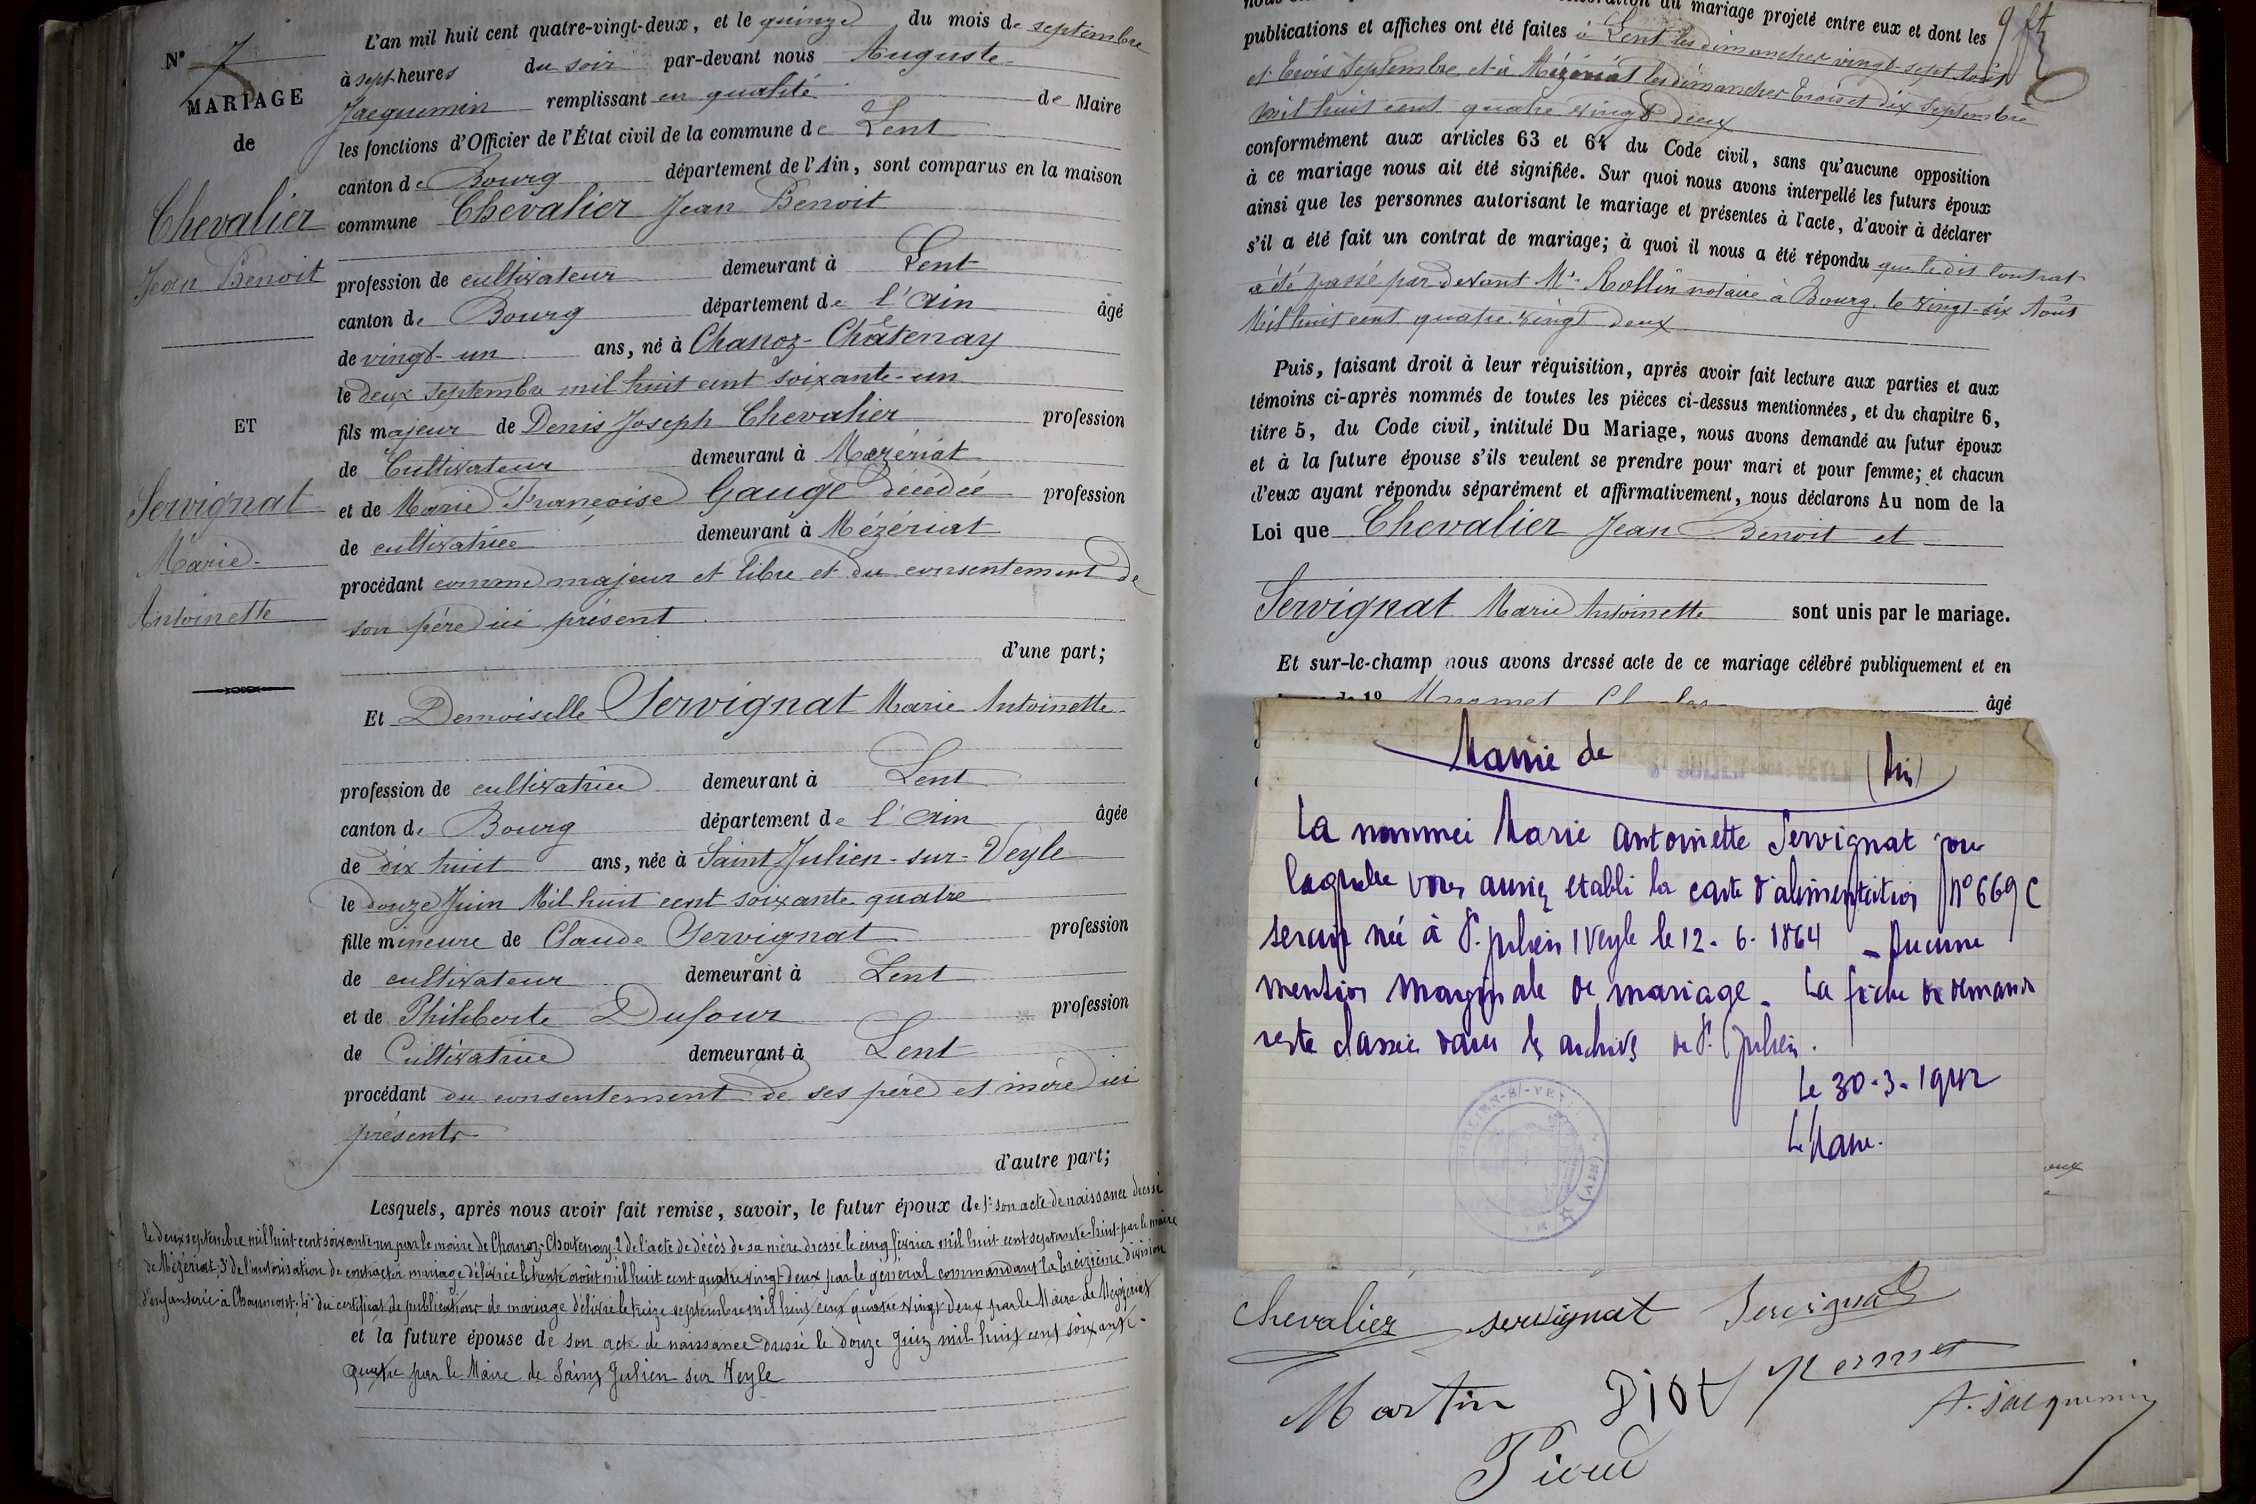 N° 7
MARIAGE
de
Chevalier
Jean Benoit
ET
Servignat
Marie
Antoinette
L'an mil huit cent quatre-vingt-deux, et le quinze du mois de septembre
à sept heures du soir par-devant nous Auguste
Jacquemin remplissant en qualité de Maire
les fonctions d'Officier de l'État civil de la commune de Lent
canton de Bourg département de l'Ain, sont comparus en la maison
commune Chevalier Jean Benoit
profession de cultivateur demeurant à Lent
canton de Bourg département de l'Ain âgé
de vingt-un ans, né à Chanoz-Châtenay
le deux septembre mil huit cent soixante-un
fils majeur de Denis Joseph Chevalier profession
de Cultivateur demeurant à Mézériat
et de Marie Françoise Gauge décédée profession
de cultivatrice demeurant à Mézériat
procédant comme majeur et libre et du consentement de
son père ici présent
d'une part;
Et Demoiselle Servignat Marie Antoinette
profession de cultivatrice demeurant à Lent
canton de Bourg département de l'Ain âgée
de dix huit ans, née à Saint Julien-sur-Veyle
le douze Juin Mil huit cent soixante quatre
fille mineure de Claude Servignat profession
de cultivateur demeurant à Lent
et de Philiberte Dufour profession
de Cultivatrice demeurant à Lent
procédant du consentement de ses père et mère ici
présents
d'autre part;
Lesquels, après nous avoir fait remise, savoir, le futur époux de 1° son acte de naissance dressé
le deux septembre mil huit cent soixante-un par le maire de Chanoz-Chatenay; 2° de l'acte de décès de sa mère dressé le cinq février mil huit cent septante-huit par le maire
de Mézériat; 3° de l'autorisation de contracter mariage délivrée le trente août mil huit cent quatre vingt deux par le général commandant la treizième division
d'infanterie à Chaumont; 4° du certificat de publications de mariage délivré le treize septembre mil huit cent quatre vingt deux par le Maire de Mézériat
et la future épouse de son acte de naissance dressé le douze Juin mil huit cent soixante
quatre par le Maire de Saint Julien sur Veyle
du mariage projeté entre eux et dont les
publications et affiches ont été faites à Lent les dimanches vingt-sept Août
et trois Septembre et à Mézériat les dimanches trois et dix Septembre
mil huit cent quatre vingt deux
conformément aux articles 63 et 64 du Code civil, sans qu'aucune opposition
à ce mariage nous ait été signifiée. Sur quoi nous avons interpellé les futurs époux
ainsi que les personnes autorisant le mariage et présentes à l'acte, d'avoir à déclarer
s'il a été fait un contrat de mariage; à quoi il nous a été répondu que le dit Contrat
a été passé par devant Me Rollin notaire à Bourg le vingt-six Août
Mil huit cent quatre vingt deux
Puis, faisant droit à leur réquisition, après avoir fait lecture aux parties et aux
témoins ci-après nommés de toutes les pièces ci-dessus mentionnées, et du chapitre 6,
titre 5, du Code civil, intitulé Du Mariage, nous avons demandé au futur époux
et à la future épouse s'ils veulent se prendre pour mari et pour femme; et chacun
d'eux ayant répondu séparément et affirmativement, nous déclarons Au nom de la
Loi que Chevalier Jean Benoit et
Servignat Marie Antoinette sont unis par le mariage.
Et sur-le-champ nous avons dressé acte de ce mariage célébré publiquement et en
âgé
Mairie de ST JULIEN-SUR-VEYLE (Ain)
La nommée Marie Antoinette Servignat pour
laquelle vous auriez établi la carte d'alimentation N° 669 C
serait née à St. Julien s/Veyle le 12-6-1864 - Aucune
mention marginale de mariage. La fiche de demande
reste classée dans les archives de St. Julien.
Le 30-3-1942
Le Maire.
Chevalier servignat Servignat
Martin Diot
A. Jacquemin